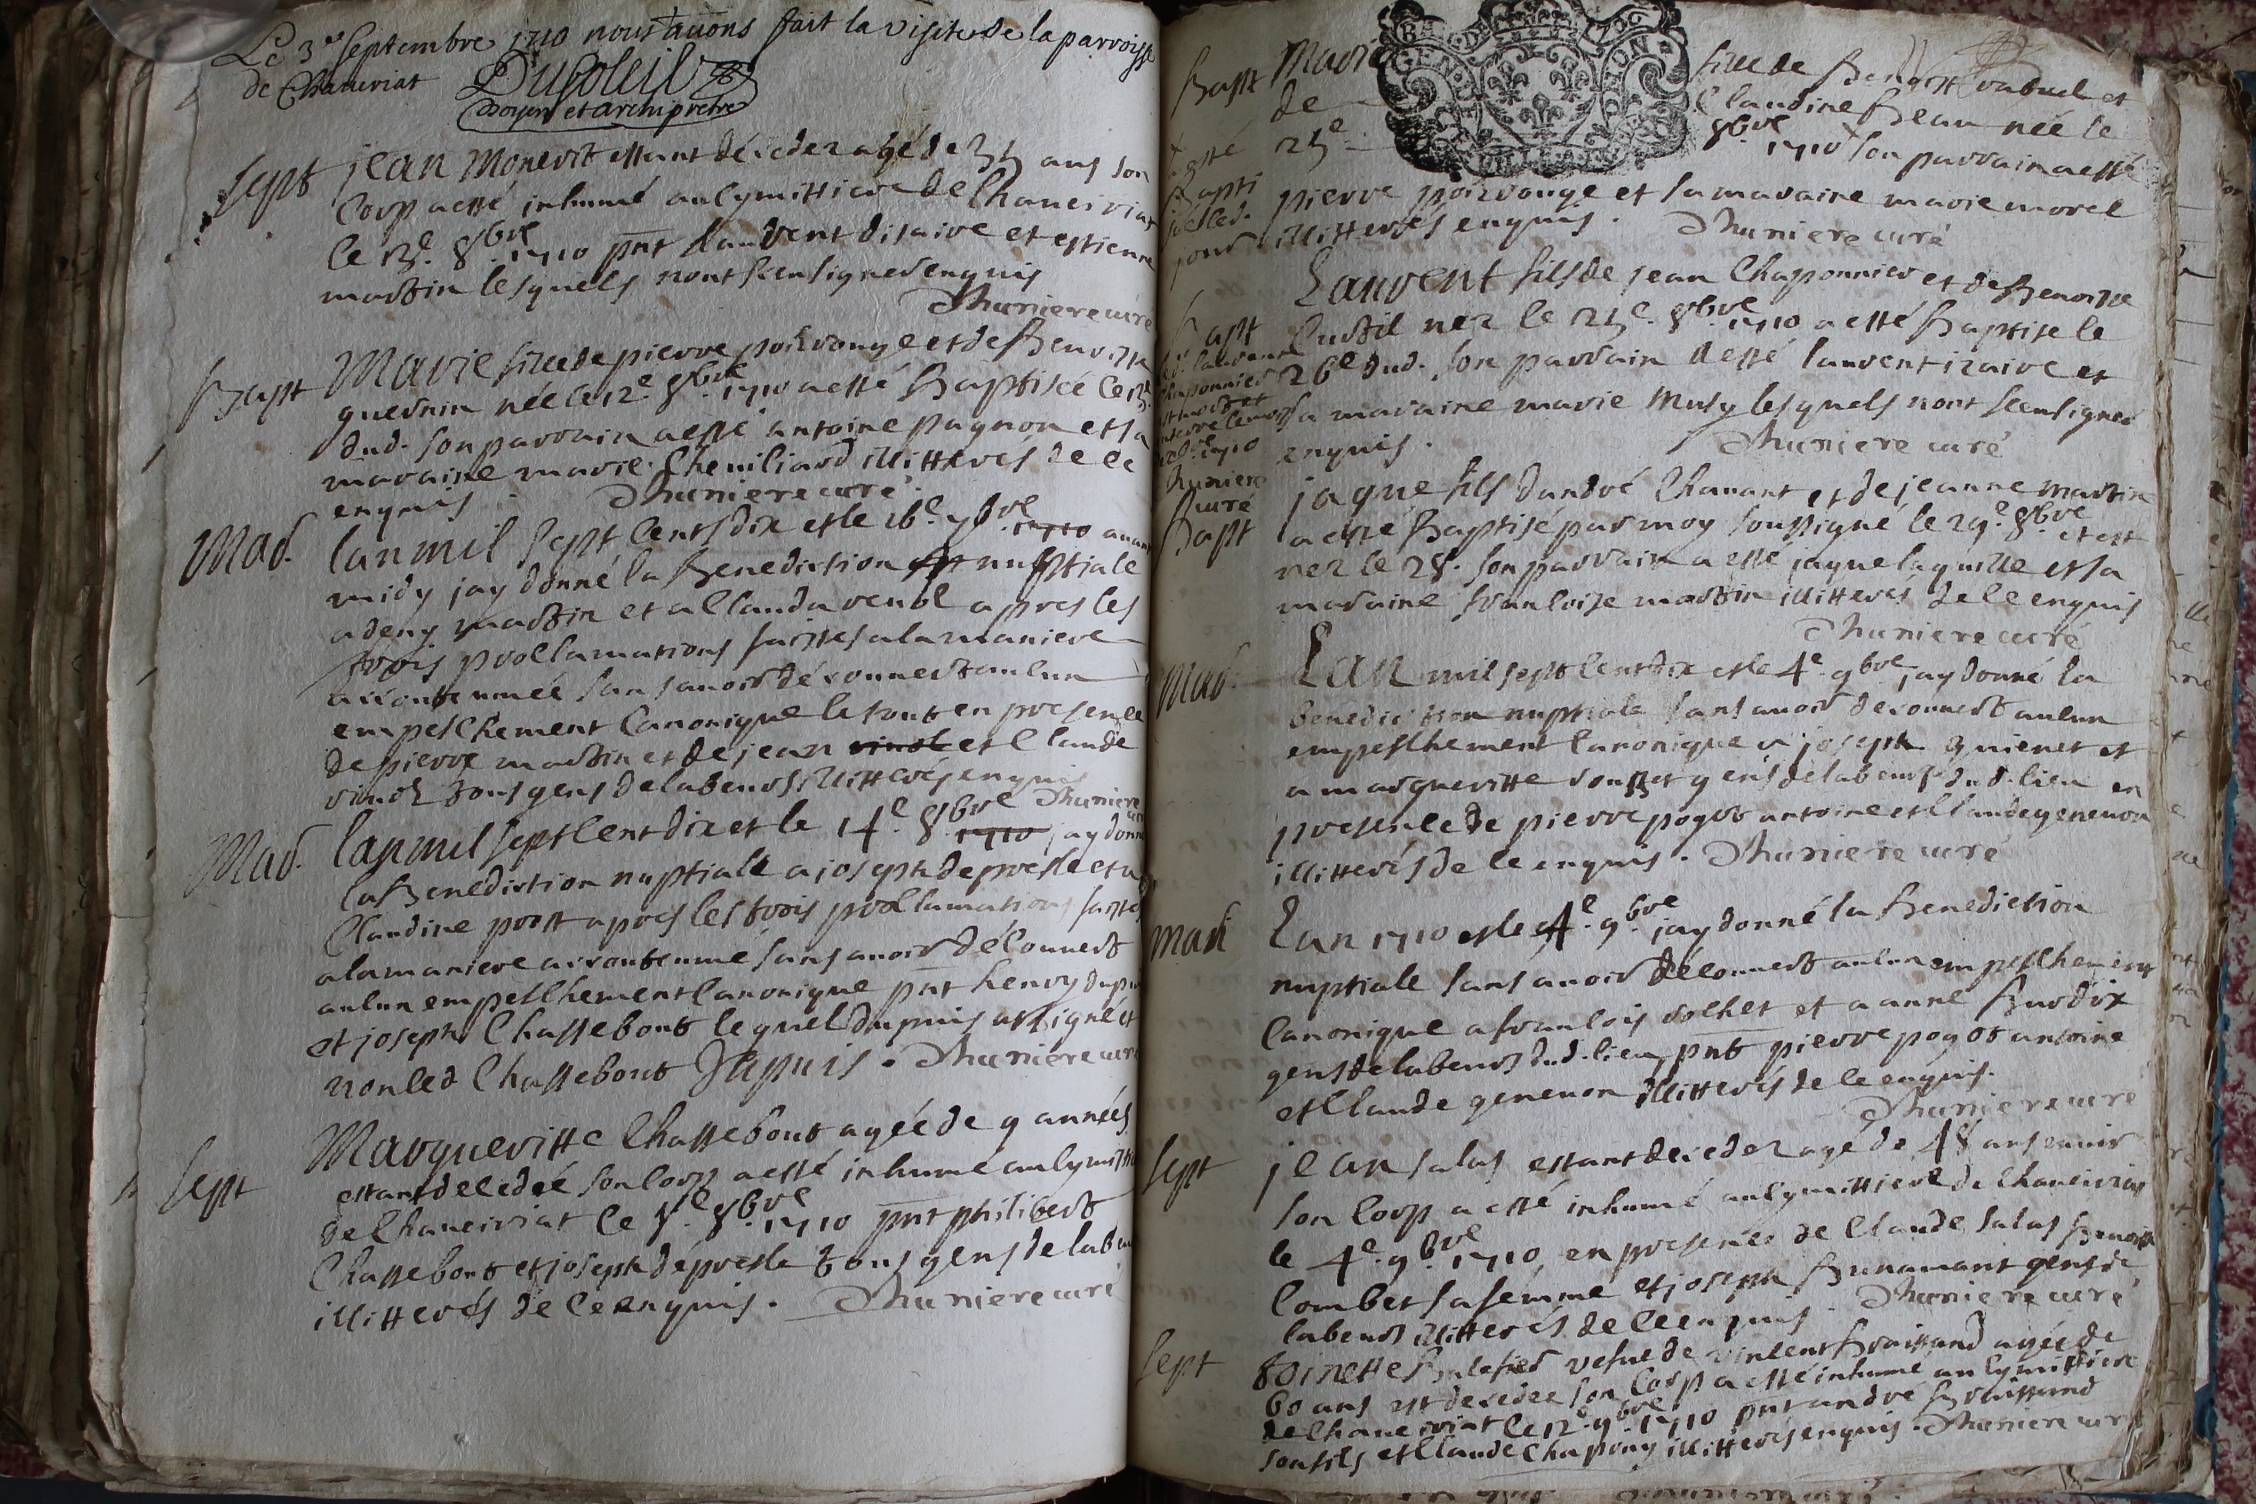 Le 3e septembre 1710 nous avons fait la visite de la parroisse
de Chaneriat Dusoleil
doyen et archiprêtre
Sept jean Monert estant décédez agé de 35 ans son
Corp a esté inhumé au cymittiere de Chaneiriat
le 13e. 8bre. 1710 pnt Laurent disaire et estienne
martin lesquels n'ont sceu signer enquis
Thuniere curé
Bapt Marie fille de pierre poizrouge et de Benoitte
guerrin née le 12e. 8bre 1710 a esté Baptisée le 13e
dud. son parrain a esté antoine pagnon et sa
maraine marie Cheuiliard illitterés de ce
enquis. Thuniere curé.
Mad. lan mil sept cents dix et le 16e. 7bre 1710 auant
midy jay donné la Benediction nuptiale
a deny martin et a Clauda venot apres les
trois proclamations faittes a la maniere
accoutumée sans auoir découuert aulcun
empeschement Canonique le tout en presence
de pierre martin et de jean vinot et Claude
vinot tous gens de labeurs illitterés enquis Thuniere
Mad. lan mil sept cent dix et le 14e. 8bre 1710 jay donné
la Benediction nuptiale a joseph depresle et a
Claudine prost apres les trois proclamations faittes
a la maniere accoutumé sans auoir découuert
aulcun empeschement Canonique pnt henry dupuis
et joseph Chassebout lequel dupuis a signé et
non led Chassebout Dupuis. Thuniere curé
Sept Margueritte Chassebout agée de 9 années
estant décédée son corp a esté inhumé au cymittiere
de Chaneiriat le 5e. 8bre. 1710 pnt philibert
Chassebout et joseph dépresle tous gens de labeur
illitterés de ce enquis. Thuniere curé
Bapt Marie fille de Benoitt et
de Claudine Beau née le
25e 8bre 1710 son parrain a esté
pierre poizrouge et sa maraine marie morel
illitterés enquis. Thuniere curé
a esté
Bapti
sée led.
jour
Laurent fils de jean Chaponnier et de Benoitte
Bapt Curtil nez le 25e. 8bre. 1710 a esté Baptise le
26e dud. son parrain a esté laurent izaire et
sa maraine marie Musy lesquels n'ont sceu signer
enquis. Thuniere curé
led. laurent
Chaponnier
est mort et
enterré le
1710
Thuniere
curé
Bapt jaque fils d'andré Chanant et de jeanne martin
a esté Baptisé par moy soussigné le 29e. 8bre et est
nez le 28. son parrain a esté jaque laquille et sa
maraine francoise martin illitterés de ce enquis
Thuniere curé
Mad. Lan mil sept cent dix et le 4e. 9bre jay donné la
bénédiction nuptiale sans auoir découuert aulcun
empeschement Canonique a joseph guienet et
a margueritte rousset gens de labeurs dud. lieu en
presence de pierre pogot antoine et Claude geneuon
illitterés de ce enquis. Thuniere curé
Mad Lan 1710 et le 4e. 9bre jay donné la Benediction
nuptiale sans auoir découuert aulcun empeschement
Canonique a francois volhet et a anne Burdix
gens de labeurs dud. lieu, pnt pierre pogot antoine
et Claude geneuon illitterés de ce enquis.
Thuniere curé
Sept jean salas estant decedez agé de 48 ans enuir
son Corp a esté inhumé au cymittiere de Chaneiriat
le 4e. 9bre. 1710 en presence de Claude salas Benoitte
Combet sa femme et joseph Bunamant gens de
labeurs illitterés de ce enquis. Thuniere curé
Sept toinette vefue de vincent Braissand agée de
60 ans est decedee son Corp a esté inhumé au Cymittiere
de Chaneiriat le 12e. 9bre 1710 pnt andré Braissand
son fils et Claude Chapuny illitterés enquis. Thuniere curé